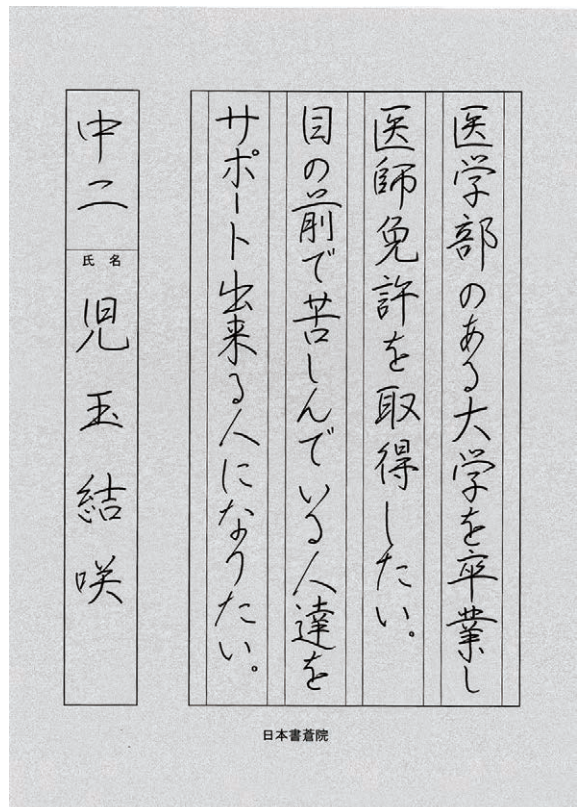 医学部のある大学を卒業し
医師免許を取得したい。
目の前で苦しんでいる人達を
サポート出来る人になりたい。
中二
氏名
児玉結咲
日本書蒼院